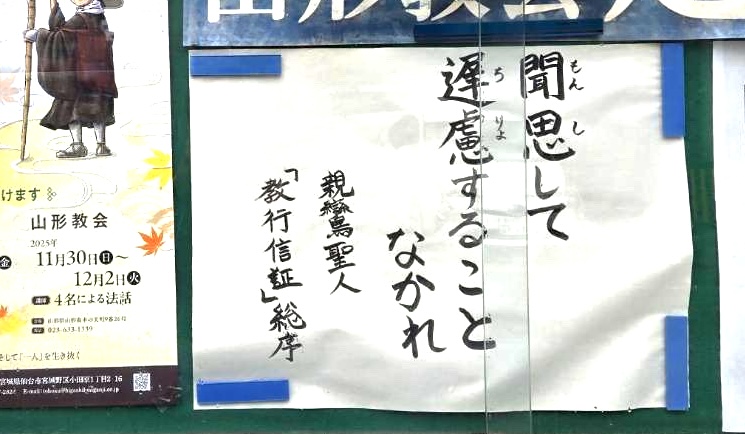 山形教会
聞思して
もんし
遅慮すること
ちりょ
なかれ
親鸞聖人
「教行信証」総序
けます
山形教会
2025年
金
11月30日日～
12月2日火
講師 4名による法話
023-633-1339
そして「一人」を生き抜く
宮城県仙台市宮城野区小田原1丁目2-16